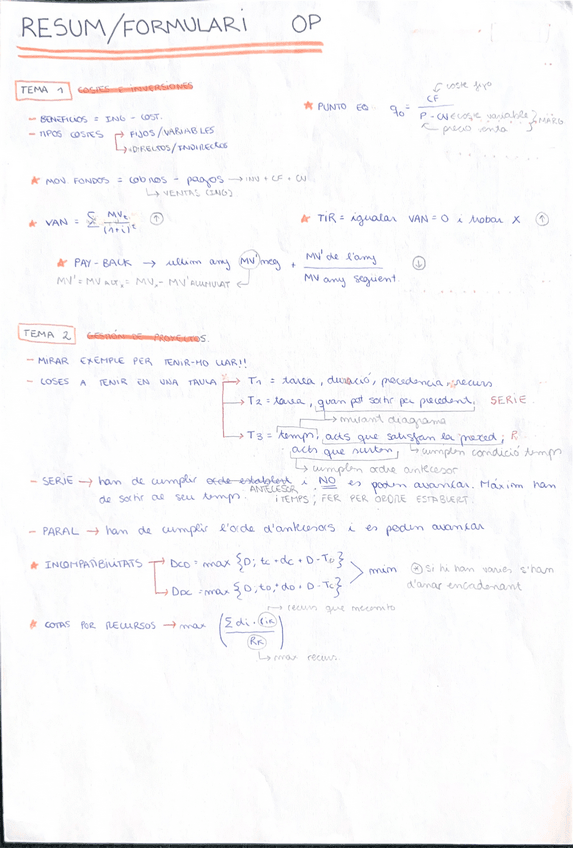 RESUM/FORMULARI OP
TEMA 1 COSTES E INVERSIONES
- BENEFICIOS = ING - COST.
- TIPOS COSTES → FIJOS/VARIABLES
→ DIRECTOS/INDIRECTOS
★ PUNTO EQ. q₀ = CF / P - CV
coste fijo
variable
precio venta
★ MOV FONDOS = cobros - pagos → INV + CF + CV
↳ VENTAS (ING)
★ VAN = Σ MV / (1+i)^t ↑
★ TIR = igualar VAN = 0 i trobar X ↑
★ PAY-BACK → ultim any MV' neg + MV' de l'any / MV any següent ↓
MV' = MV - MV' ACUMULAT
TEMA 2 GESTIÓN DE PROYECTOS.
- MIRAR EXEMPLE PER TENIR-HO CLAR!!
- COSES A TENIR EN UNA TAULA → T1 = tarea, duració, precedencia, recurs
→ T2 = tarea, quan pot sortir per precedent. SERIE
→ mirant diagrama
→ T3 = temps, acts que satisfan la preced;
acts que surten ↳ cumplen condició temps
↳ cumplen ordre antecesor
- SERIE → han de cumplir ordre establert i NO es poden avançar. Màxim han
ANTECESOR
de sortir al seu temps. i TEMPS; FER PER ORDRE ESTABLERT.
- PARAL → han de cumplir l'orde d'antecesors i es poden avançar
★ INCOMPATIBILITATS → DCD = max {D; tc + dc + D - TD}
→ DDC = max {D, tD + dD + D - TC}
> min * Si hi han varies s'han
d'anar encadenant
→ recurs que necessito
★ COTAS POR RECURSOS → max (Σ di · rik / Rk)
↳ max recurs.